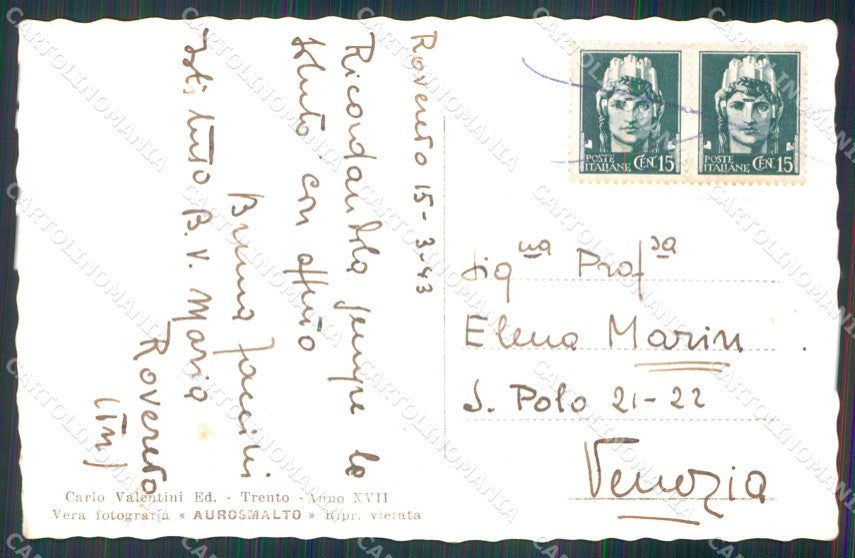 Rovereto 15-3-43
Ricordandola sempre la
saluto con affetto
Bruna
Istituto B. V. Maria
Rovereto
(Tn)
Sigⁿᵃ Profˢᵃ
Elena Marin
S. Polo 21-22
Venezia
POSTE ITALIANE CEN. 15
POSTE ITALIANE CEN. 15
Carlo Valentini Ed. - Trento - Anno XVII
Vera fotografia « AUROSMALTO » Ripr. vietata
CARTOLINOMANIA